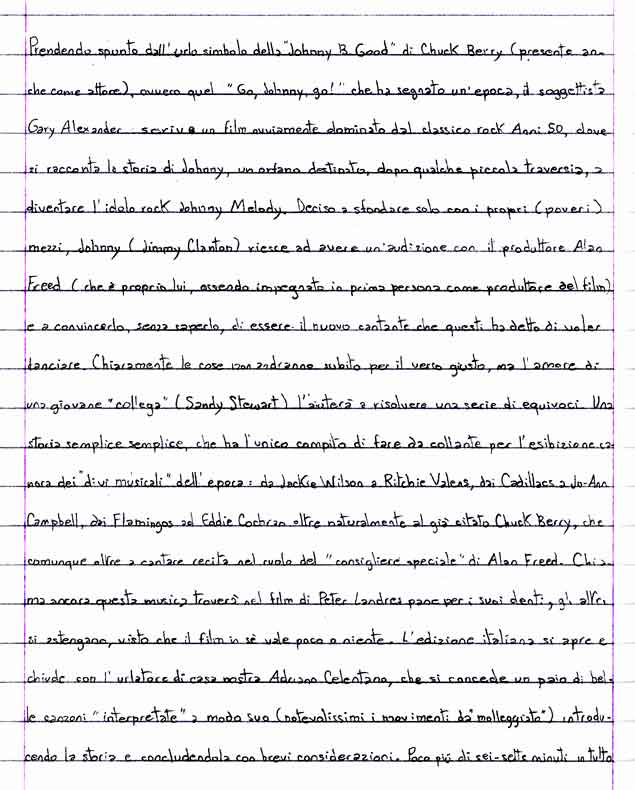 Prendendo spunto dall'urlo simbolo della "Johnny B. Good" di Chuck Berry (presente an-
che come attore), ovvero quel "Go, Johnny, go!" che ha segnato un'epoca, il soggettista
Gary Alexander scrive un film ovviamente dominato dal classico rock Anni 50, dove
si racconta la storia di Johnny, un orfano destinato, dopo qualche piccola traversia, a
diventare l'idolo rock Johnny Melody. Deciso a sfondare solo con i propri (poveri)
mezzi, Johnny (Jimmy Clanton) riesce ad avere un'audizione con il produttore Alan
Freed (che è proprio lui, essendo impegnato in prima persona come produttore del film)
e a convincerlo, senza saperlo, di essere il nuovo cantante che questi ha detto di voler
lanciare. Chiaramente le cose non andranno subito per il verso giusto, ma l'amore di
una giovane "collega" (Sandy Stewart) l'aiuterà a risolvere una serie di equivoci. Una
storia semplice semplice, che ha l'unico compito di fare da collante per l'esibizione ca-
nora dei "divi musicali" dell'epoca: da Jackie Wilson a Ritchie Valens, dai Cadillacs a Jo-Ann
Campbell, dai Flamingos ad Eddie Cochran oltre naturalmente al già citato Chuck Berry, che
comunque oltre a cantare recita nel ruolo del "consigliere speciale" di Alan Freed. Chi a-
ma ancora questa musica troverà nel film di Peter Landres pane per i suoi denti, gli altri
si astengano, visto che il film in sè vale poco o niente. L'edizione italiana si apre e
chiude con l'urlatore di casa nostra Adriano Celentano, che si concede un paio di bel-
le canzoni "interpretate" a modo suo (notevolissimi i movimenti da "molleggiato") introdu-
cendo la storia e concludendola con brevi considerazioni. Poco più di sei-sette minuti in tutto